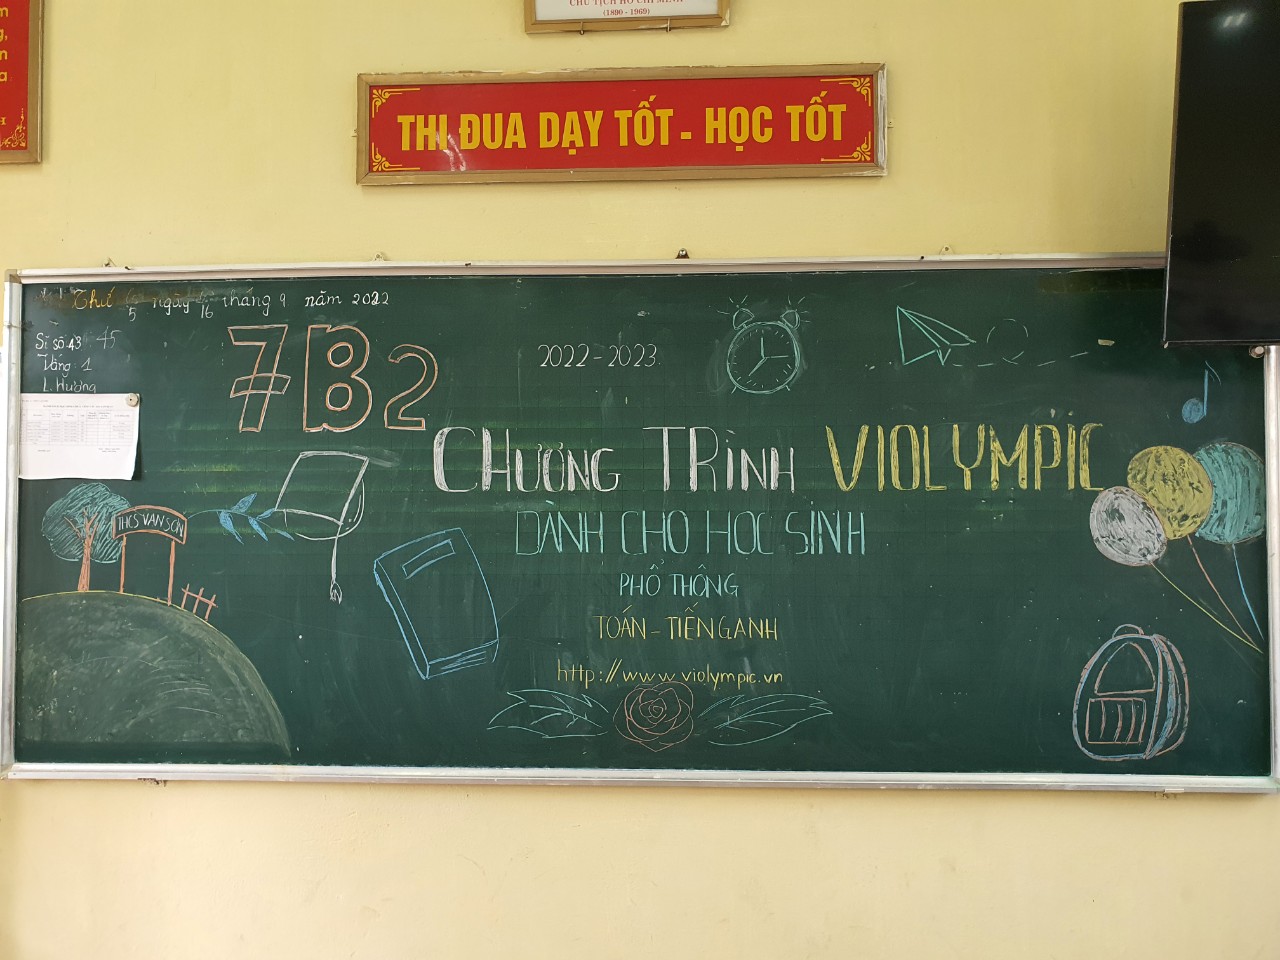 CHỦ TỊCH HỒ CHÍ MINH
(1890 - 1969)
THI ĐUA DẠY TỐT - HỌC TỐT
Thứ 5 ngày 16 tháng 9 năm 2022
Sĩ số: 43 45
Vắng: 1
L. Hương
7B2
2022-2023
CHƯƠNG TRÌNH VIOLYMPIC
DÀNH CHO HỌC SINH
PHỔ THÔNG
TOÁN - TIẾNG ANH
http://www.violympic.vn
THCS VAN SƠN